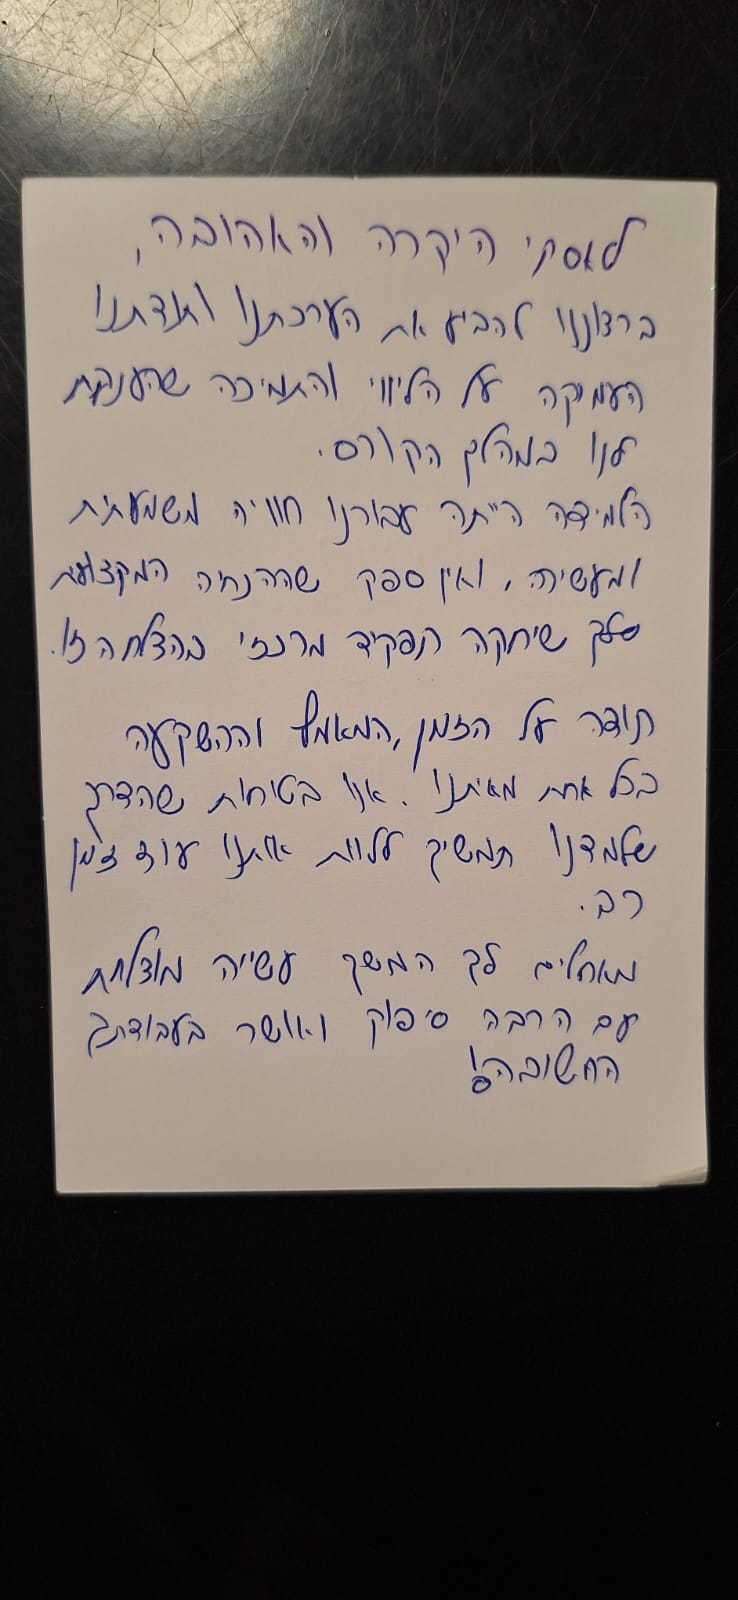 לאסתי היקרה והאהובה,
ברצוננו להביע את הערכתנו ותודתנו
העמיקה על הליווי והתמיכה שהענקת
לנו במהלך הקורס.
הלמידה הייתה עבורנו חוויה משמעתית
ומעשירה, ואין ספק שההנחיה המקצועית
שלך שיחקה תפקיד מרכזי בהצלחה זו.
תודה על הזמן, המאמץ וההשקעה
בכל אחת מאיתנו. אנו בטוחות שהדרך
שלמדנו תמשיך ללוות אותנו עוד זמן
רב.
מאחלים לך המשך עשייה מוצלחת
עם הרבה סיפוק ואושר בעבודתך
החשובה!